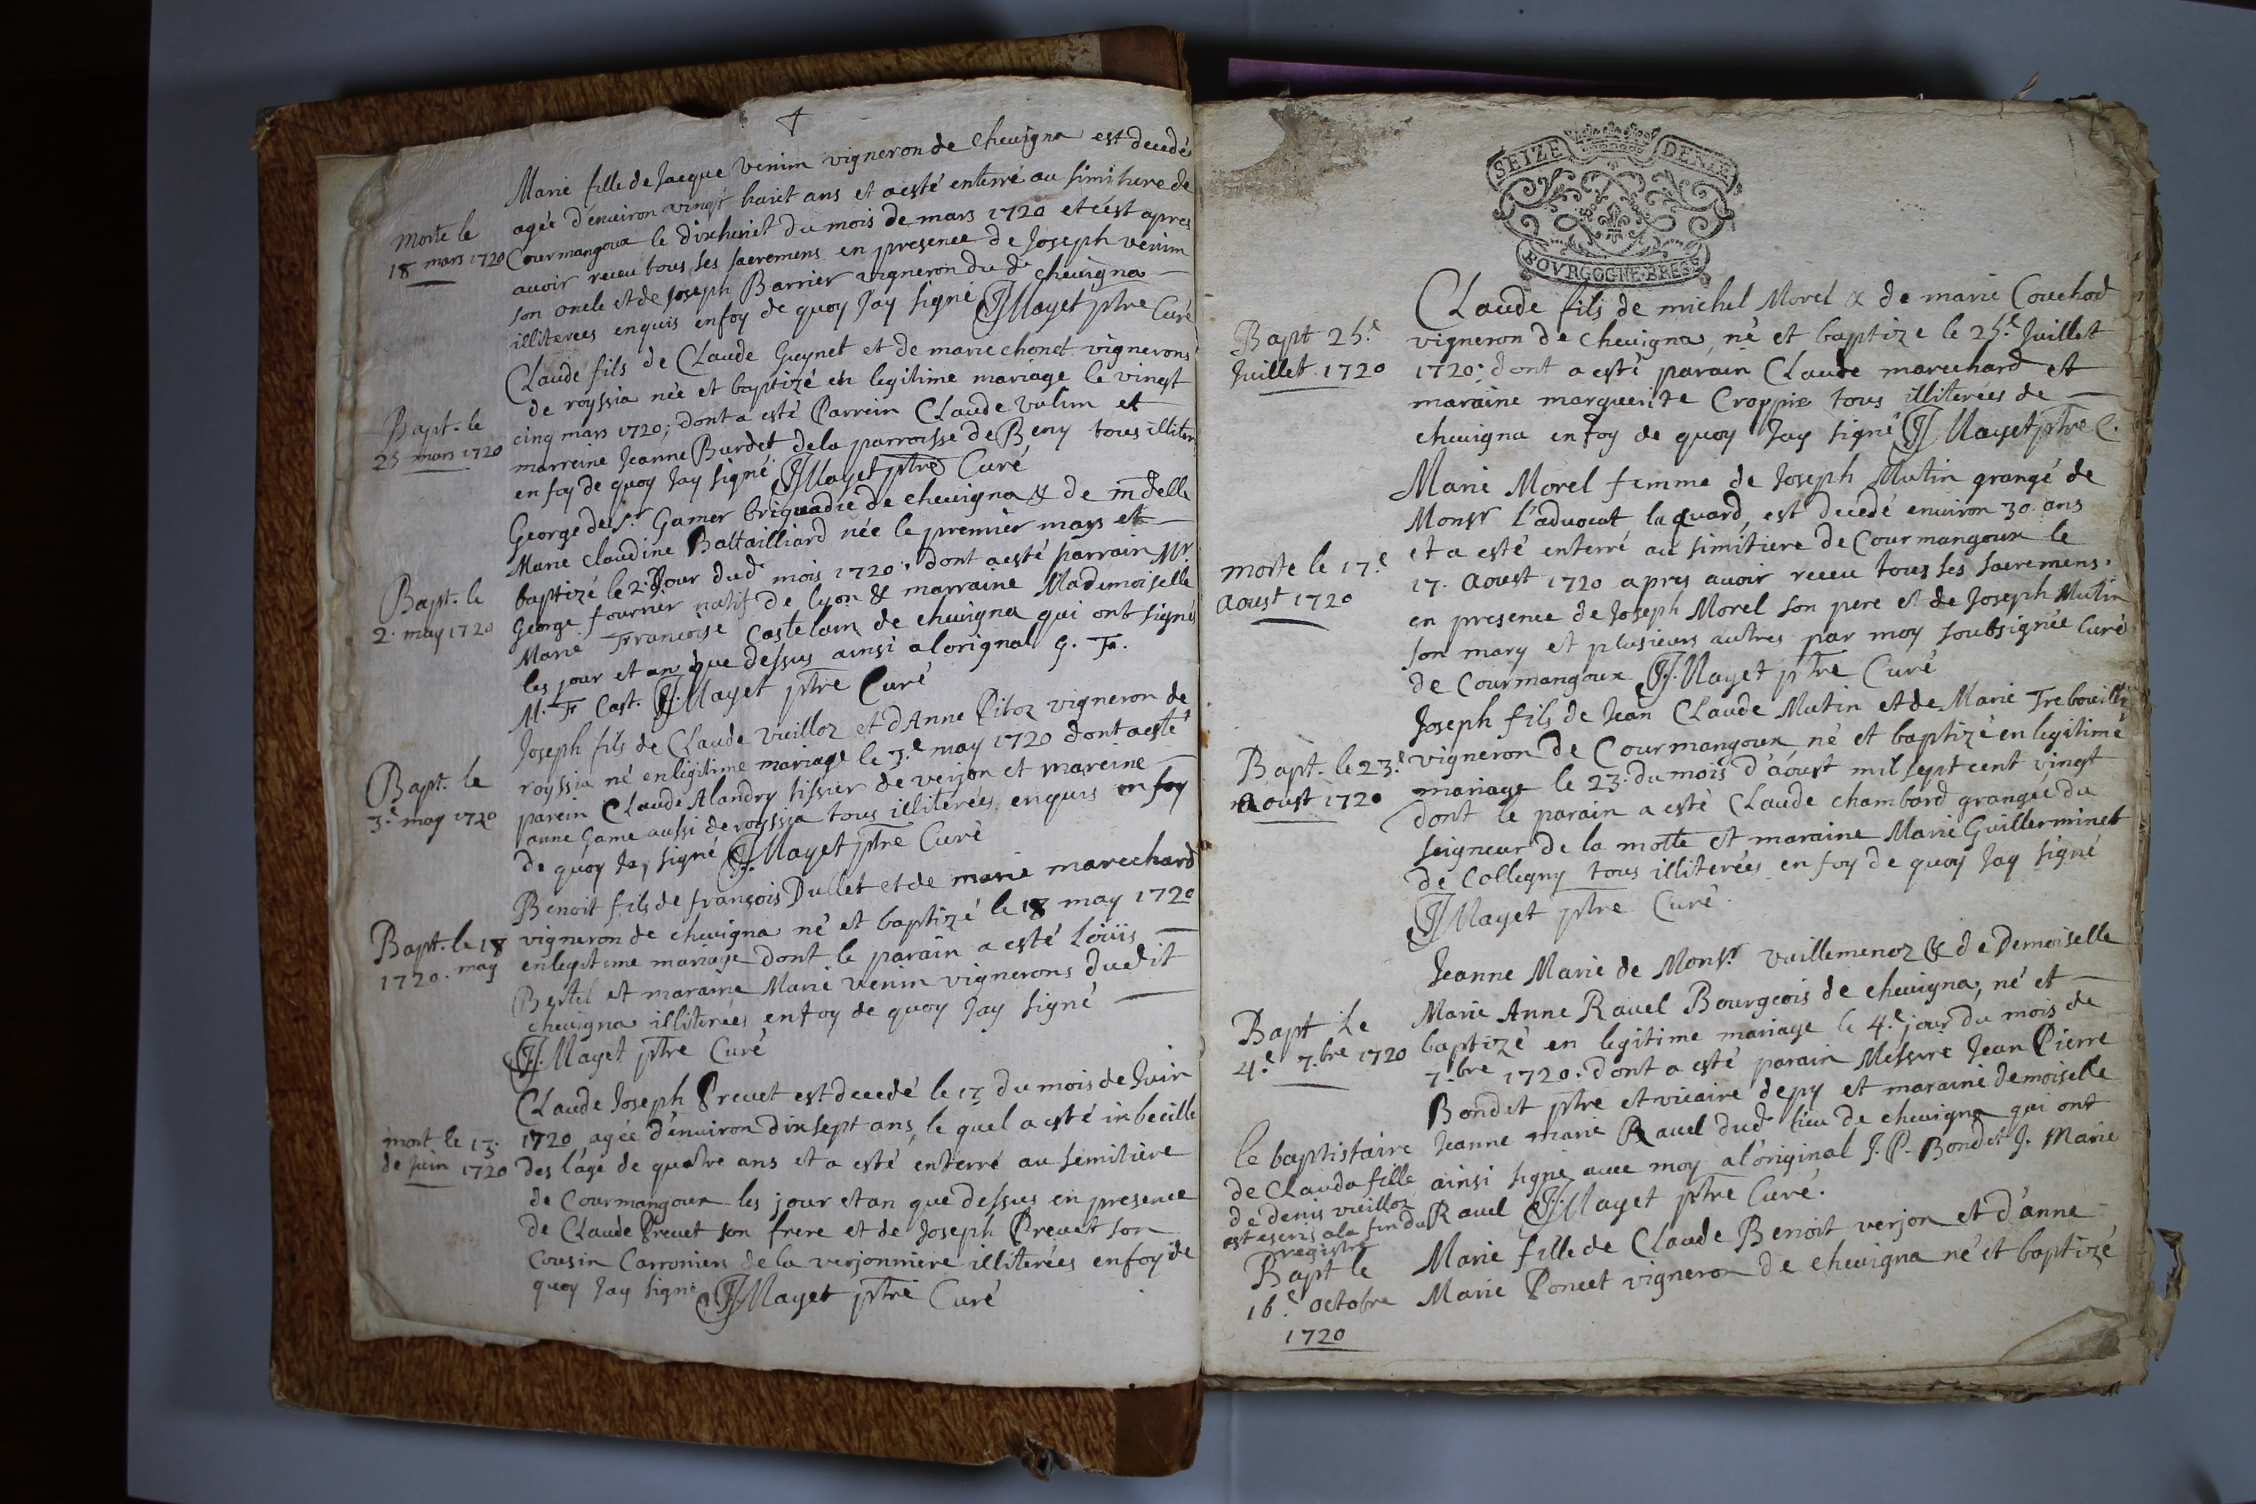 Marie fille de Jacque Venim vigneron de cheuigna est decedé
morte le
18 mars 1720
agée d'enuiron vingt huit ans et a esté enterré au simitiere de
Courmangoux le dixhuict du mois de mars 1720 et c'est apres
auoir receu tous ses sacremens en presence de Joseph venim
son oncle et de Joseph Barrier vigneron du d. cheuigna
illiterees enquis en foy de quoy Jay signé J Mayet ptre Curé
Bapt. le
25 mars 1720
Claude fils de Claude Guynet et de marie chonet vignerons
de royssia née et baptizé en legitime mariage le vingt
cinq mars 1720; dont a esté Parrein Claude vulim et
marreine Jeanne Burdet de la parroisse de Beny tous illiter
en foy de quoy Jay signé J Mayet ptre Curé
Bapt. le
2. may 1720
George de Sr. Gamer briguadié de cheuigna & de mdelle
Marie Claudine Battailliard née le premier mays et
baptizé le 2. Jour dud. mois 1720, dont a esté parrain Mr
George fournier natif de lyon & marraine Mademoiselle
Marie Francoise Castelain de cheuigna qui ont signés
les jour et an que dessus ainsi a lorignal G. Fr.
M. F Cast. J. Mayet ptre Curé
Bapt. le
3.e may 1720
Joseph fils de Claude vuilloz et dAnne Pitoz vigneron de
royssia né en legitime mariage le 3.e may 1720 dont a esté
parein Claude Alandry tissier de verjon et mareine
anne Game aussi de royssia tous illiterées enquis en foy
de quoy Jay signé J. Mayet ptre Curé
Bapt. le 18
1720. may
Benoit fils de françois Dullet et de marie marechard
vigneron de cheuigna né et baptizé le 18 may 1720
en legitime mariage dont le parain a esté Loüis
Bertet et maraine Marie venin vignerons dudit
cheuigna illiterées en foy de quoy Jay signé
J. Mayet ptre Curé
mort le 13.
de Juin 1720
Claude Joseph Preuet est decedé le 13 du mois de Juin
1720 agée d'enuiron dix sept ans, le quel a esté inbecille
des lage de quatre ans et a esté enterré au semitiere
de Courmangoux les jour et an que dessus en presence
de Claude Preuet son frere et de Joseph Preuet son
Cousin Carroniers de la verjonniere illiterées en foy de
quoy Jay signé J. Mayet ptre Curé
SEIZE DENIE
BOVRGOGNE BRESSE
Bapt 25.e
Juillet 1720
Claude fils de michel Morel & de marie Couchod
vigneron de cheuigna, né et baptize le 25.e Juillet
1720; dont a esté parain Claude marechard et
maraine marguerite Croppie tous illiterées de
cheuigna en foy de quoy Jay signé J Mayet ptre C.
morte le 17.e
Aoust 1720
Marie Morel femme de Joseph Mutin grangé de
Monsr l'aduocat laquard, est decedé enuiron 30 ans
et a esté enterré au simitiere de Courmangoux le
17. Aoust 1720 apres auoir receu tous ses sacremens.
en presence de Joseph Morel son pere et de Joseph Mutin
son mary et plusieurs autres par moy soubsignée Curé
de Courmangoux J. Mayet ptre Curé
Bapt. le 23.e
Aoust 1720
Joseph fils de Jean Claude Mutin et de Marie Trebouillé
vigneron de Courmangoux, né et baptizé en legitime
mariage le 23. du mois d'aoust mil sept cent vingt
dont le parain a esté Claude chambard grangée du
seigneur de la motte et maraine Marie Guillerminet
de Collegny tous illiterées en foy de quoy Jay signé
J Mayet ptre Curé.
Bapt Le
4.e 7.bre 1720
Jeanne Marie de Monsr. vuillemenoz & de Demoiselle
Marie Anne Rauel Bourgeois de cheuigna, né et
baptizé en legitime mariage le 4.e jour du mois de
7.bre 1720. dont a esté parain Messire Jean Pierre
Bondet ptre et vicaire depy et maraine demoiselle
Jeanne marie Rauel dud. lieu de cheuigna qui ont
ainsi signé auec moy a l'original J. P. Bondet J. Marie
Rauel J. Mayet ptre Curé.
le baptistaire
de Clauda fille
de denis vieilloz
est escris a la fin du
registre
Bapt le
16.e octobre
1720
Marie fille de Claude Benoit verjon et d'anne
Marie Poncet vigneron de cheuigna né et baptizé